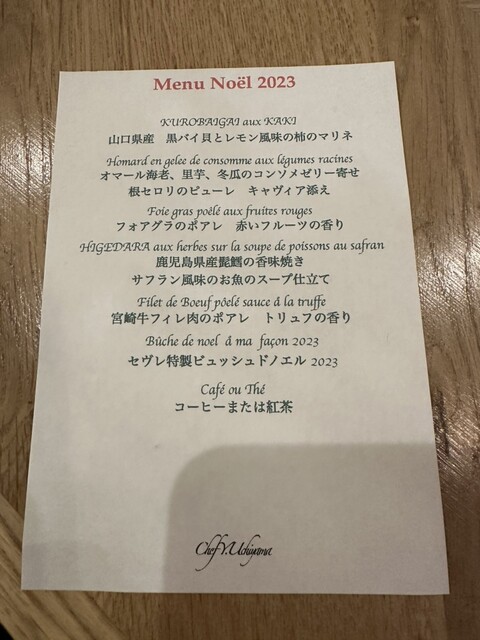 Menu Noël 2023
KUROBAIGAI aux KAKI
山口県産　黒バイ貝とレモン風味の柿のマリネ
Homard en gelee de consomme aux légumes racines
オマール海老、里芋、冬瓜のコンソメゼリー寄せ
根セロリのピューレ　キャヴィア添え
Foie gras poêlé aux fruites rouges
フォアグラのポアレ　赤いフルーツの香り
HIGEDARA aux herbes sur la soupe de poissons au safran
鹿児島県産髭鱈の香味焼き
サフラン風味のお魚のスープ仕立て
Filet de Boeuf pôelé sauce á la truffe
宮崎牛フィレ肉のポアレ　トリュフの香り
Bûche de noel á ma façon 2023
セヴレ特製ビュッシュドノエル 2023
Café ou Thé
コーヒーまたは紅茶
Chef Y.Uchiyama